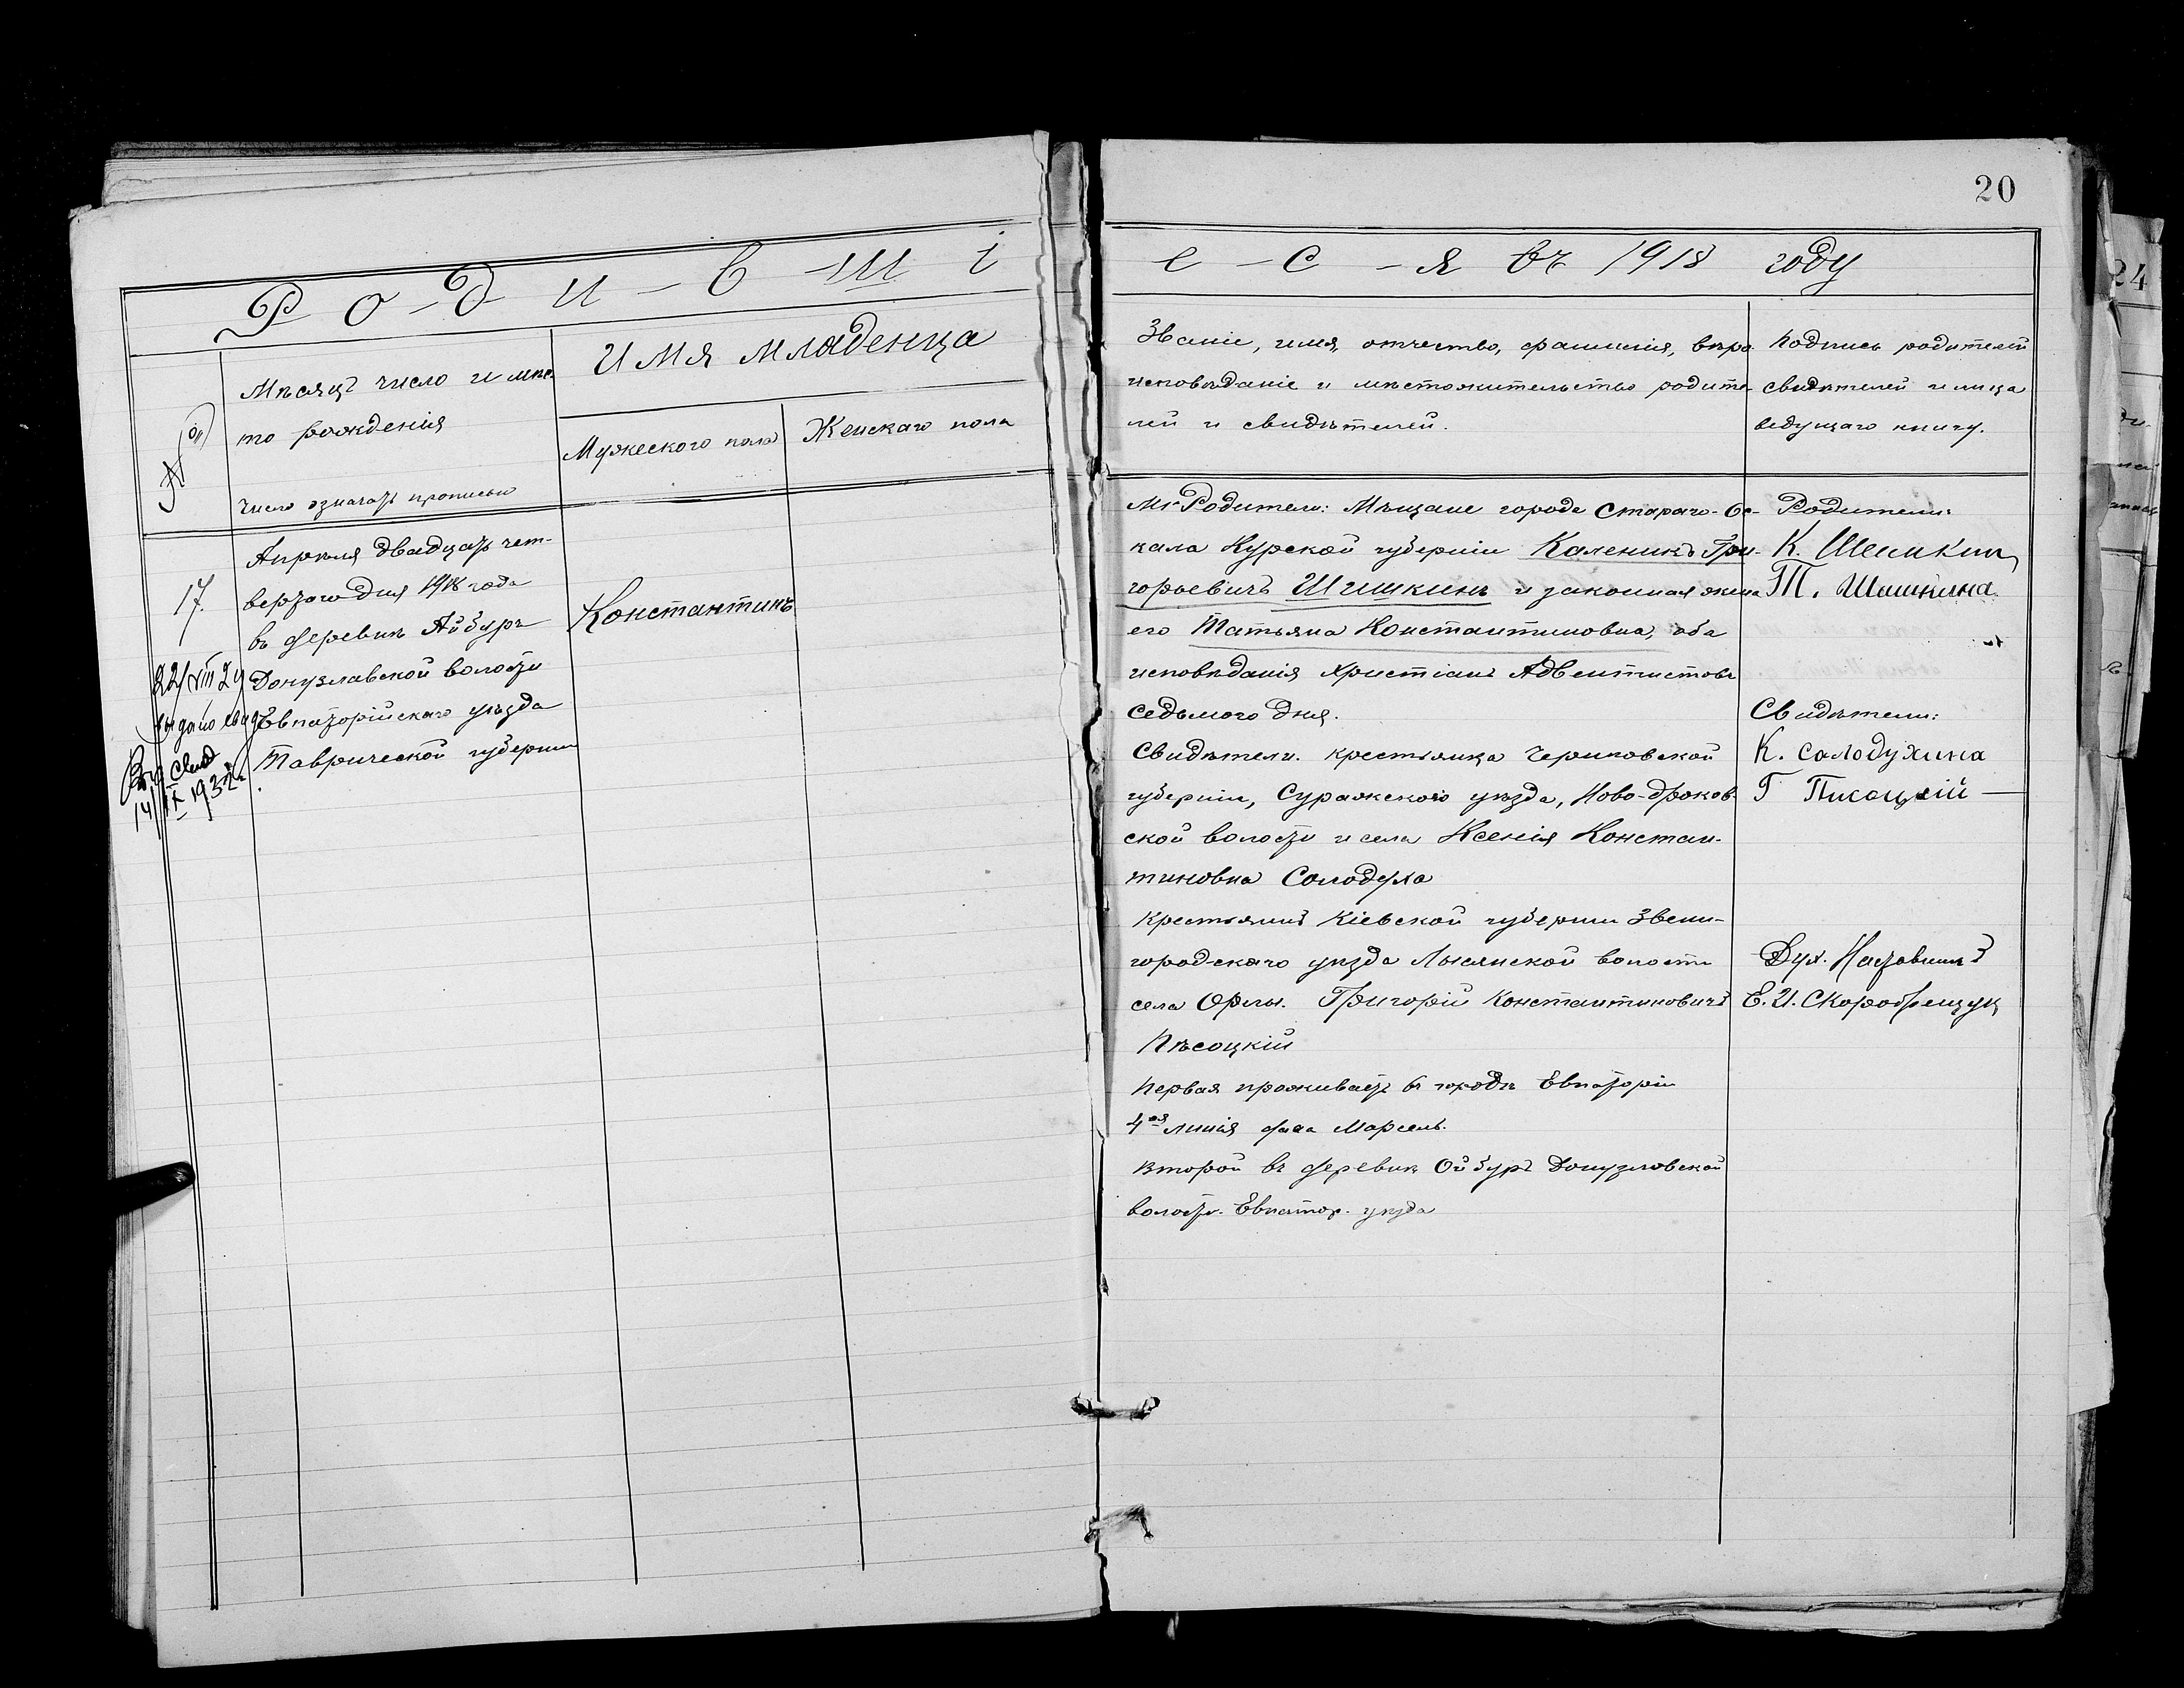 20
Р-о-д-и-в-ш-і
е-с-я въ 1918 году
№
Мѣсяцъ число и мѣс-
то рожденія
Число означать прописью
Имя младенца
Мужеского пола
Женскаго пола
Званіе, имя, отчество, фамилія, вѣро-
исповѣданіе и мѣстожительство родите-
лей и свидѣтелей.
Подпись родителей
свидѣтелей и лица
ведущаго книгу.
17.
Апрѣля двадцать чет-
вертаго дня 1918 года
въ деревнѣ Айбуръ
Донузлавской волости
Евпаторійскаго уѣзда
Таврической губерніи
22/VIII 29
14/IX 1932
Константинъ
Родители: Мѣщане города Стараго-Ос-
кала Курской губерніи Каленикъ Гри-
горьевичъ Шишкинъ и законная жена
его Татьяна Константиновна, оба
исповѣданія Христіанъ Адвентистовъ
седьмого дня.
Свидѣтели. крестьянка Черниговской
губерніи, Суражскаго уѣзда, Ново-Дроков-
ской волости и села Ксенія Констан-
тиновна Солодуха
Крестьянинъ Кіевской губерніи Звени-
городскаго уѣзда Лысянской волости
села Орлы. Григорій Константиновичъ
Пѣсоцкій
Первая проживаетъ въ городѣ Евпаторіи
4ая линія дача Марсель.
Второй въ деревнѣ Ойбуръ Донузловской
волости. Евпатор. уѣзда
Родители:
К. Шишкин
Т. Шишкина.
Свидѣтели:
К. Солодухина
Г Писоцкій
Дух. Наставникъ
Е. И. Скоробрещук
24